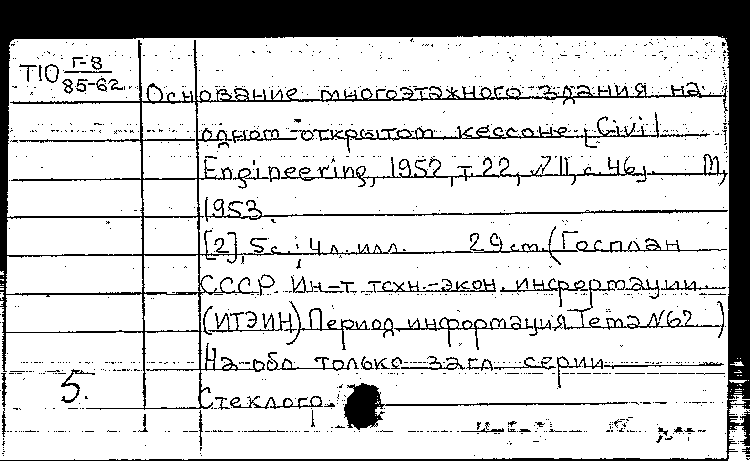 Т10 Г-8
85-62
Основание многоэтажного здания на
одном открытом кессоне. [Civil
Engineering, 1952, т. 22, № 11, с. 46]. М,
1953.
[2], 5 с.; 4 л. илл. 29 см. (Госплан
СССР. Ин-т техн.-экон. информации
(ИТЭИН) Период. информация Тема №62 )
На обл. только загл. серии.
5.
Стеклогр.